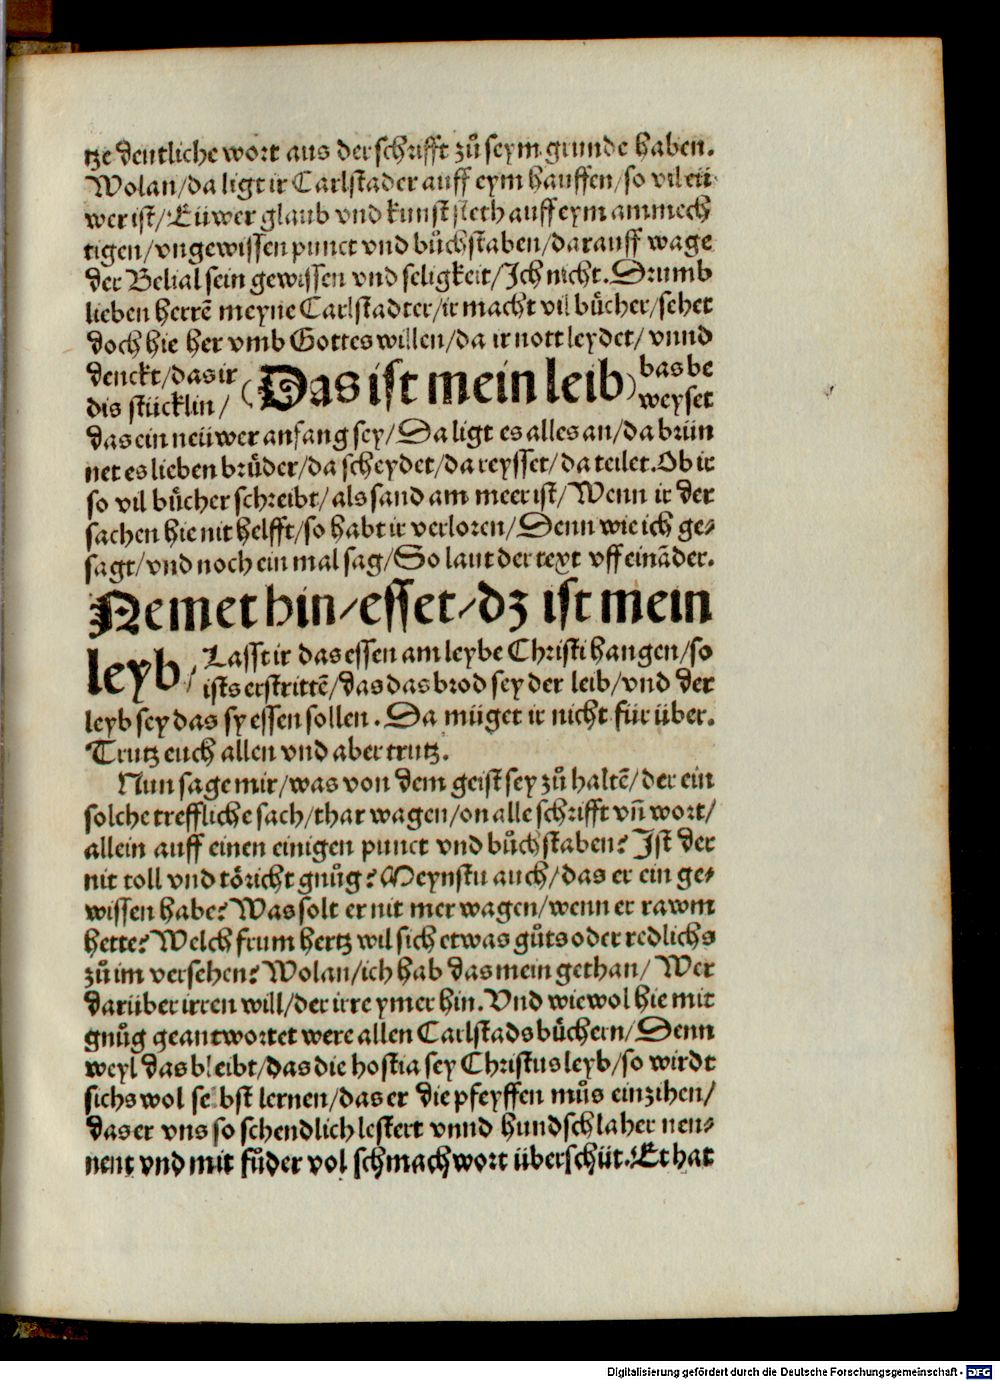 tze deutliche wort aus der schrifft zů seym grunde haben.
Wolan/da ligt ir Carlstader auff eym hauffen/so vil eü
wer ist/Eüwer glaub vnd kunst steth auff eym ammech
tigen/vngewissen punct vnd bůchstaben/darauff wage
der Belial sein gewissen vnd seligkeit/Ich nicht. Drumb
lieben herrē meyne Carlstadter/ir macht vil bücher/sehet
doch hie her vmb Gottes willen/da ir nott leydet/vnnd
denckt/das ir (Das ist mein leib) bas be
dis stücklin/ weyset
das ein neüwer anfang sey/Da ligt es alles an/da brün
net es lieben brüder/da scheydet/da reysset/da teilet. Ob ir
so vil bücher schreibt/als sand am meer ist/Wenn ir der
sachen hie nit helfft/so habt ir verloren/Denn wie ich ge-
sagt/vnd noch ein mal sag/So laut der text vff einãder.
Nemet hin/esset/dz ist mein
leyb/ Lasst ir das essen am leybe Christi hangen/so
ists erstrittē/das das brod sey der leib/vnd der
leyb sey das sy essen sollen. Da müget ir nicht für über.
Trutz euch allen vnd aber trutz.
Nun sage mir/was von dem geist sey zů haltē/der ein
solche treffliche sach/thar wagen/on alle schrifft vñ wort/
allein auff einen einigen punct vnd bůchstaben? Ist der
nit toll vnd töricht gnůg? Meynstu auch/das er ein ge-
wissen habe? Was solt er nit mer wagen/wenn er rawm
hette? Welch frum hertz wil sich etwas gůts oder redlichs
zů im versehen? Wolan/ich hab das mein gethan/Wer
darüber irren will/der irre ymer hin. Vnd wiewol hie mit
gnůg geantwortet were allen Carlstads büchern/Denn
weyl das bleibt/das die hostia sey Christus leyb/so wirdt
sichs wol selbst lernen/das er die pfeyffen můs einzihen/
das er vns so schendlich lestert vnnd hundschlaher nen-
nent vnd mit fůder vol schmachwort überschüt. Er hat
Digitalisierung gefördert durch die Deutsche Forschungsgemeinschaft - DFG